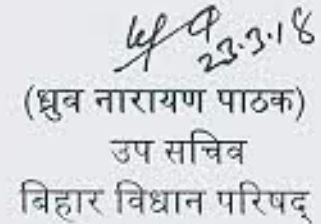 23.3.18
(ध्रुव नारायण पाठक)
उप सचिव
बिहार विधान परिषद्